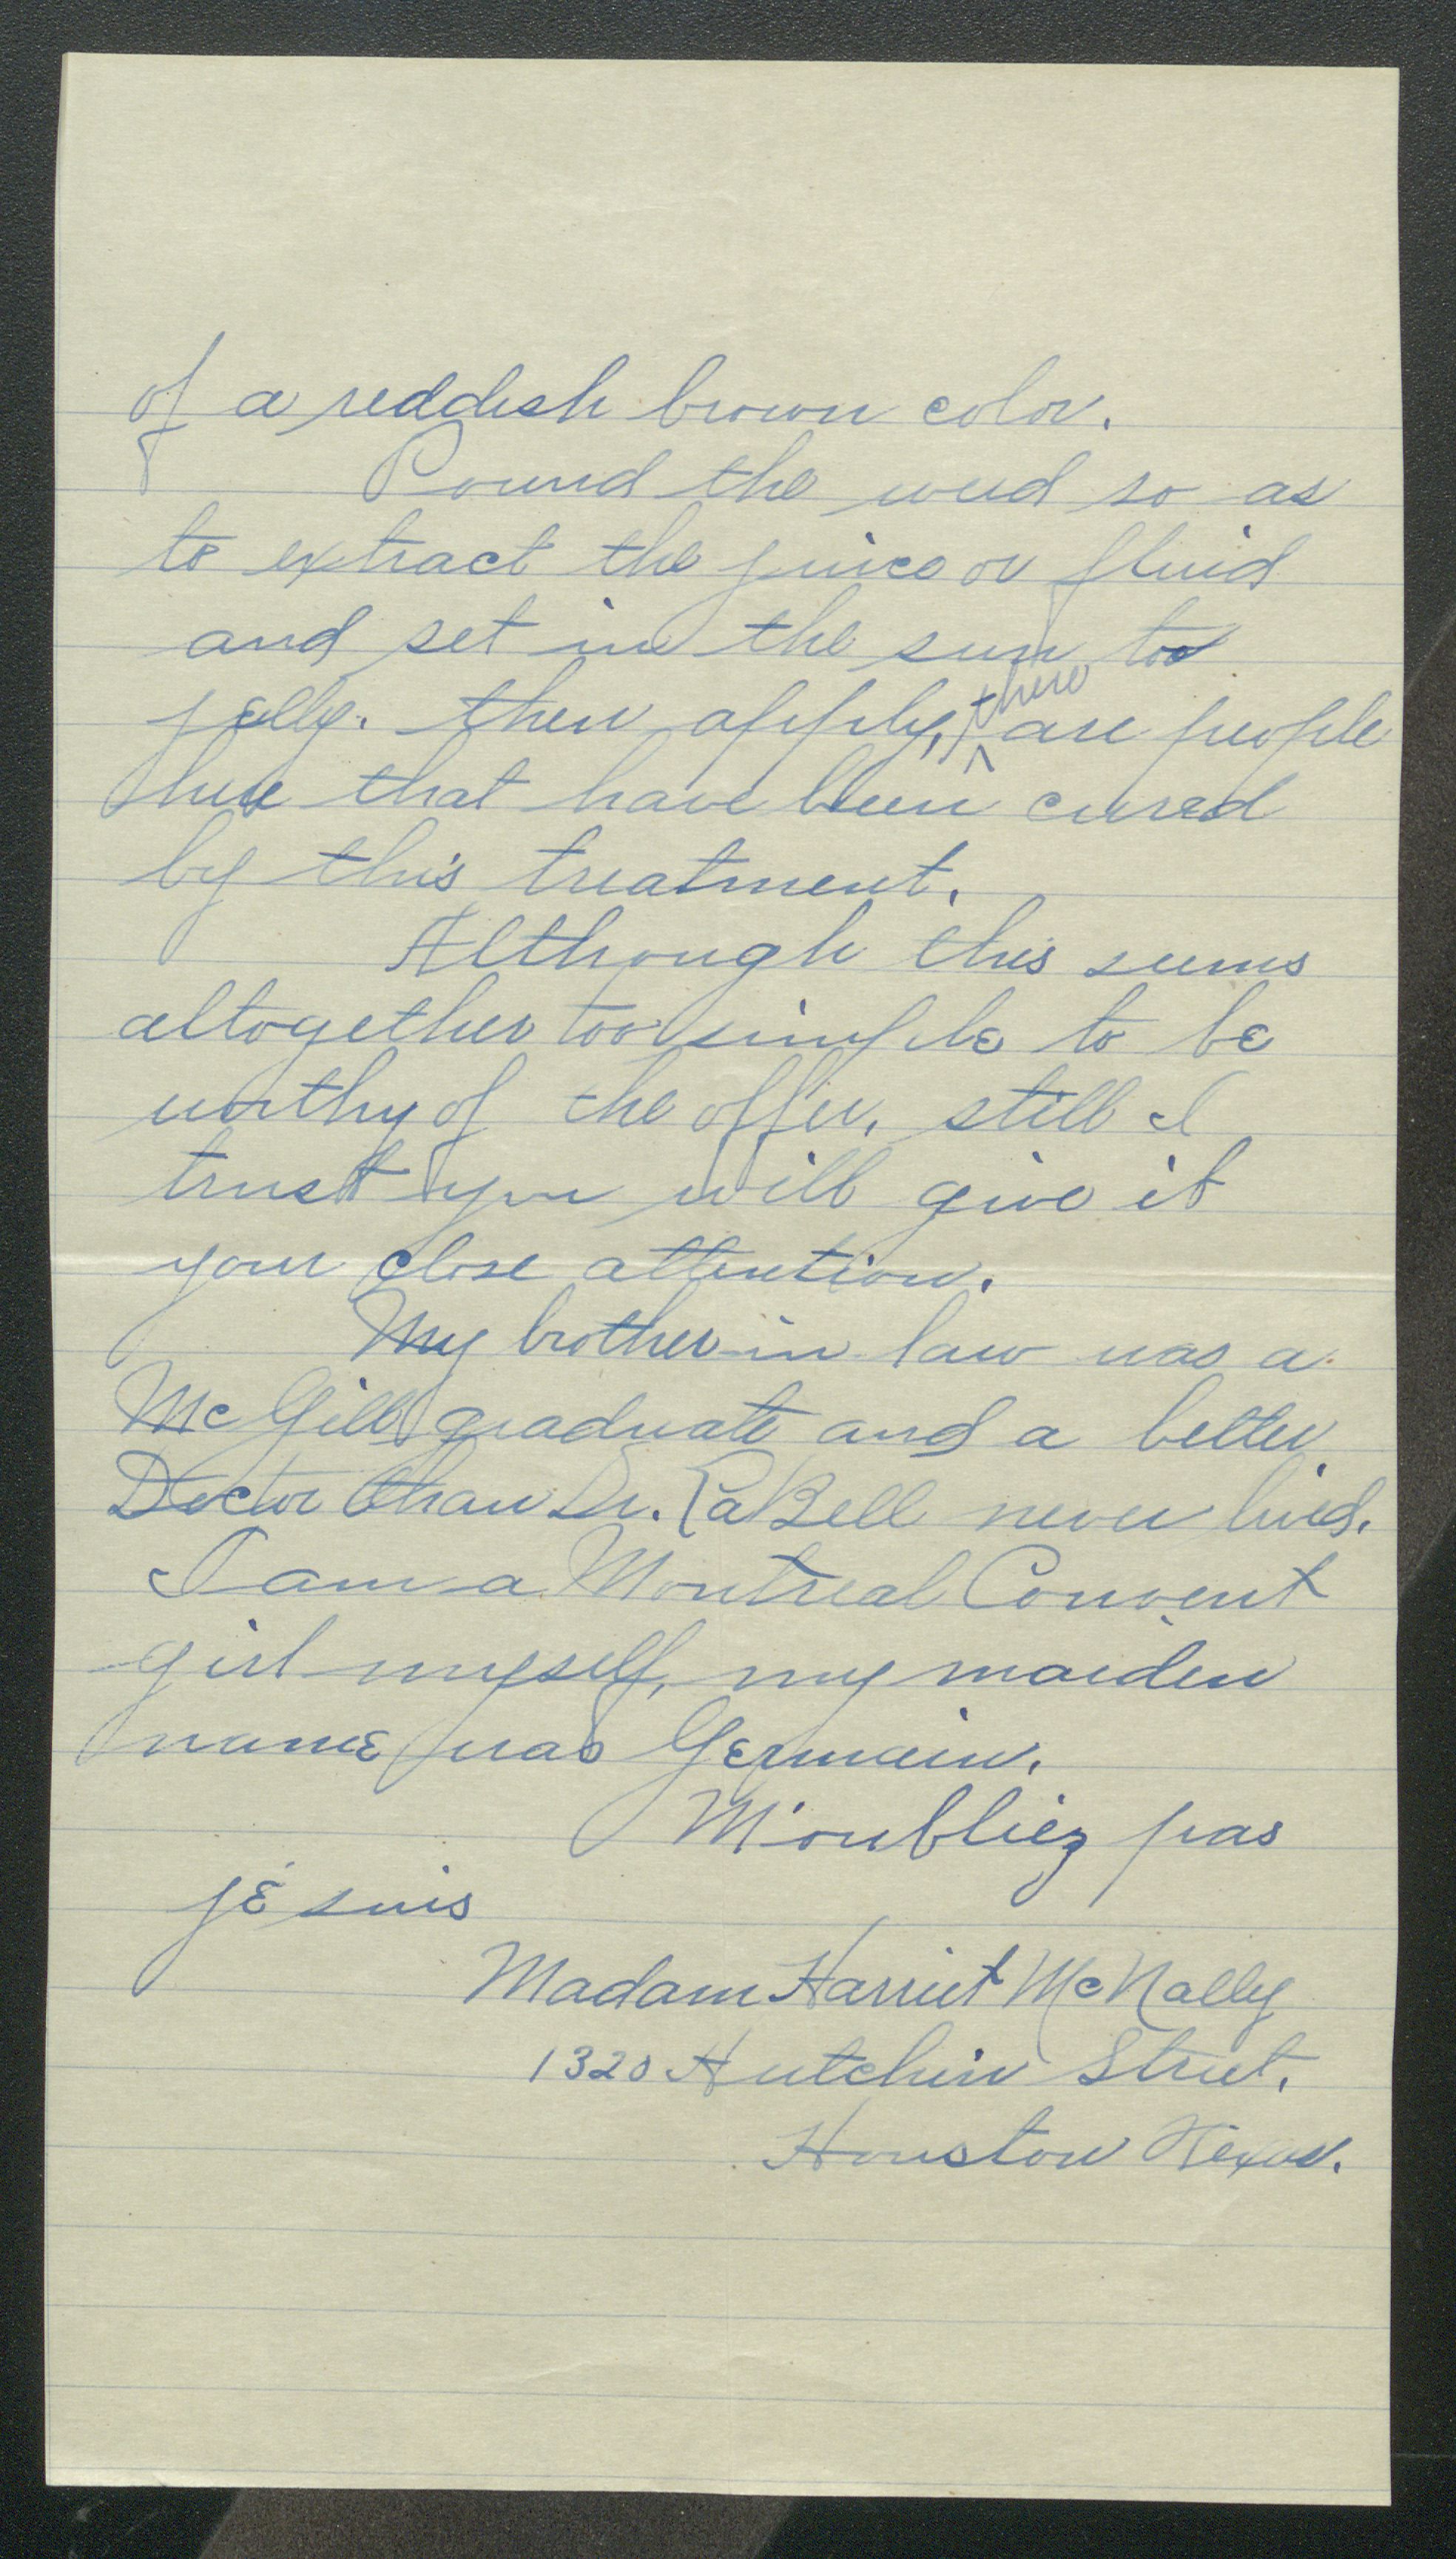 of a reddish brown color.
Pound the weed so as
to extract the juice or fluid
and set in the sun too
jelly. then apply, there are people
here that have been cured
by this treatment.
Although this seems
altogether too simple to be
worthy of the offer, still I
trust you will give it
your close attention.
My brother-in law was a
McGill graduate and a better
Doctor than Dr. LaBell never lived.
I am a Montreal Convent
girl myself, my maiden
name was Germain.
M'oubliez pas
jé suis
Madam Harriet McNally
1320 Hutchin Street.
Houston Texas.